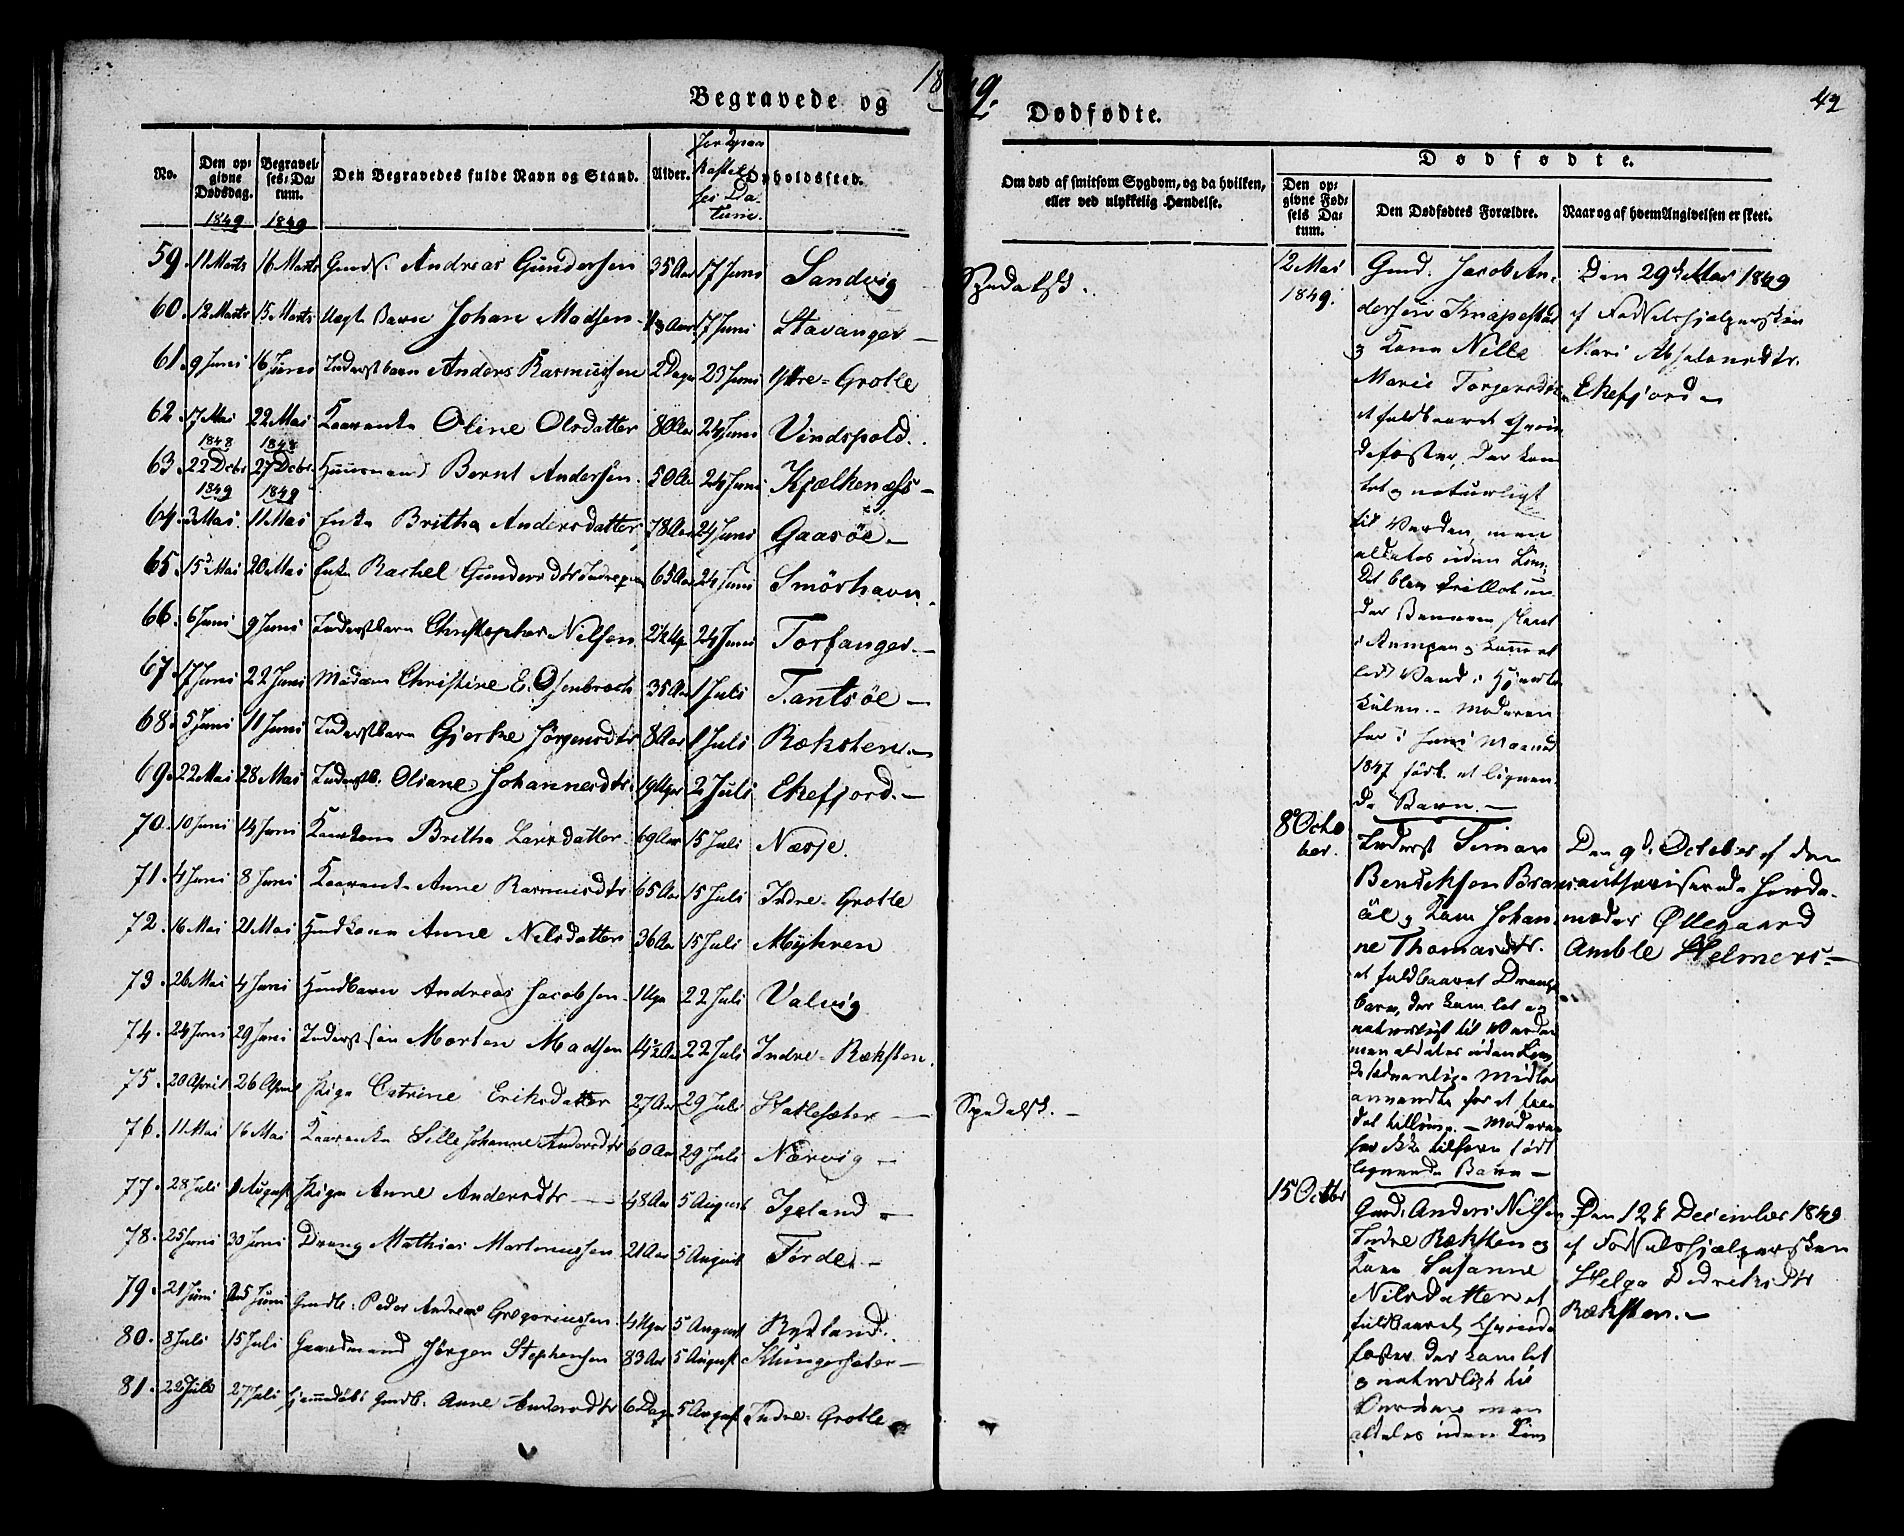 1849.
42
Begravede og
Dødfødte.
No.
Den op-
givne
Dødsdag.
1849
Begravel-
ses-Da-
tum.
1849
Den Begravedes fulde Navn og Stand.
Alder.
Jordpaa
kastel-
ses Da-
tum.
Opholdssted.
59. 11 Marts 16 Marts Gmds. Andreas Gundersen 35 Aar 17 Juni Sandvig
60. 12 Marts 15 Marts Uægt Barn Johan Madsen 17 Juni Stavanger
61. 9 Juni 16 Juni Inderstbarn Anders Rasmussen 2 Dage 23 Juni Yttre-Grotle
62. 17 Mai 22 Mai Kaarenke Oline Olsdatter 80 Aar 24 Juni Vindspold.
1848 1848
63. 22 Decbr 27 Decbr Huusmand Bernt Andersen. 50 Aar 24 Juni Kjælkenæss
1849 1849
64. 3 Mai 11 Mai Enke Britha Andersdatter 78 Aar 24 Juni Gaasöe.
65. 15 Mai 20 Mai Enke Rachel Gundersdtr 65 Aar 24 Juni Smörhavn.
66. 6 Juni 9 Juni Inderstbarn Christopher Nilsen 24 Juni Torfanger.
67. 17 Juni 22 Juni Madam Christine E. Osenbroch 35 Aar 1 Juli Tantsöe
68. 5 Juni 11 Juni Inderstbarn Gjerke Jörgensdtr 8 Aar 1 Juli Ræksten.
69. 22 Mai 28 Mai Inderstb. Oliane Johannesdtr. 19 Uger 2 Juli Ekefjord.
70. 10 Juni 14 Juni Kaarkone Britha Larsdatter 69 Aar 15 Juli Næsje.
71. 4 Juni 8 Juni Kaarenke Anne Rasmusdtr 65 Aar 15 Juli Indre-Grotle
72. 16 Mai 21 Mai Gmdkone Anne Nilsdatter 36 Aar 15 Juli Myhren
73. 26 Mai 4 Juni Gmdbarn Andreas Jacobsen 1 Uge 22 Juli Valvig
74. 24 Juni 29 Juni Inderst søn Morten Madsen 14½ Aar 22 Juli Indre-Ræksten.
75. 20 April 26 April Pige Catrine Eriksdatter 27 Aar 29 Juli Hatlesæter
76. 11 Mai 16 Mai Kaarenke Sille Johanne Andersdtr 60 Aar 29 Juli Nærvig
77. 28 Juli August Pige Anne Andersdtr 48 Aar 5 August Igeland
78. 25 Juni 30 Juni Dreng Mathias Martinussen 21 Aar 5 August Förde.
79. 21 Juni 25 Juni Gmdb. Peder Andreas Gregoriussen. 4 Uger 5 August Rydland.
80. 8 Juli 15 Juli Gaardmand Jörgen Stephensen 83 Aar 5 August Klungersæter
81. 22 Juli 27 Juli hjemmedöbt Gmdb. Anne Andersdtr 6 Dage 5 August Indre-Grotle
Om død af smitsom Sygdom, og da hvilken,
eller ved ulykkelig Hændelse.
Spedalsk.
Spedalsk.
Dødfødte.
Den op-
givne Fød-
sels Da-
tum.
Den Dødfødtes Forældre.
Naar og af hvem Angivelsen er skeet.
12 Mai
1849.
Gmd. Jacob An-
dersen Knapestad
og Kone Nille
Marie Torgersdtr.
et fuldbaaret Qvin-
defoster, der kom
let og naturligt
til Verden, men
aldeles uden Liv.
Det blev
der
i
Vand i Hjerte
kulen. Moderen
har i Juni Maaned
1847 födt et lignen-
de Barn.
Den 29de Mai 1849
af Fødselshjælpersken
Mari Absalonsdtr.
Ekefjord
8 Octo
ber.
Inderst Simon
Bendiksen Brem-
öe og Kone Johan
ne Thomasdtr.
et fuldbaaret Drenge
barn, der kom let og
naturligt til Verden
men aldeles uden Liv
de sædvanlige Midler
anvendte for at
det tillive. Moderen
har ikke tilforn født
lignende Barn
Den 9de October af den
authoriserede Jorde-
moder Øllegaard
Amble Helmers
15 Octbr
Gmd. Anders Nilsen
Indre Ræksten og
Kone Susanne
Nilsdatter et
fuldbaaret Qvinde
foster der kom let
og naturligt til
Verden men
aldeles uden Liv
Den 12te December 1849
af Fødselshjælpersken
Helga Didriksdtr
Ræksten.